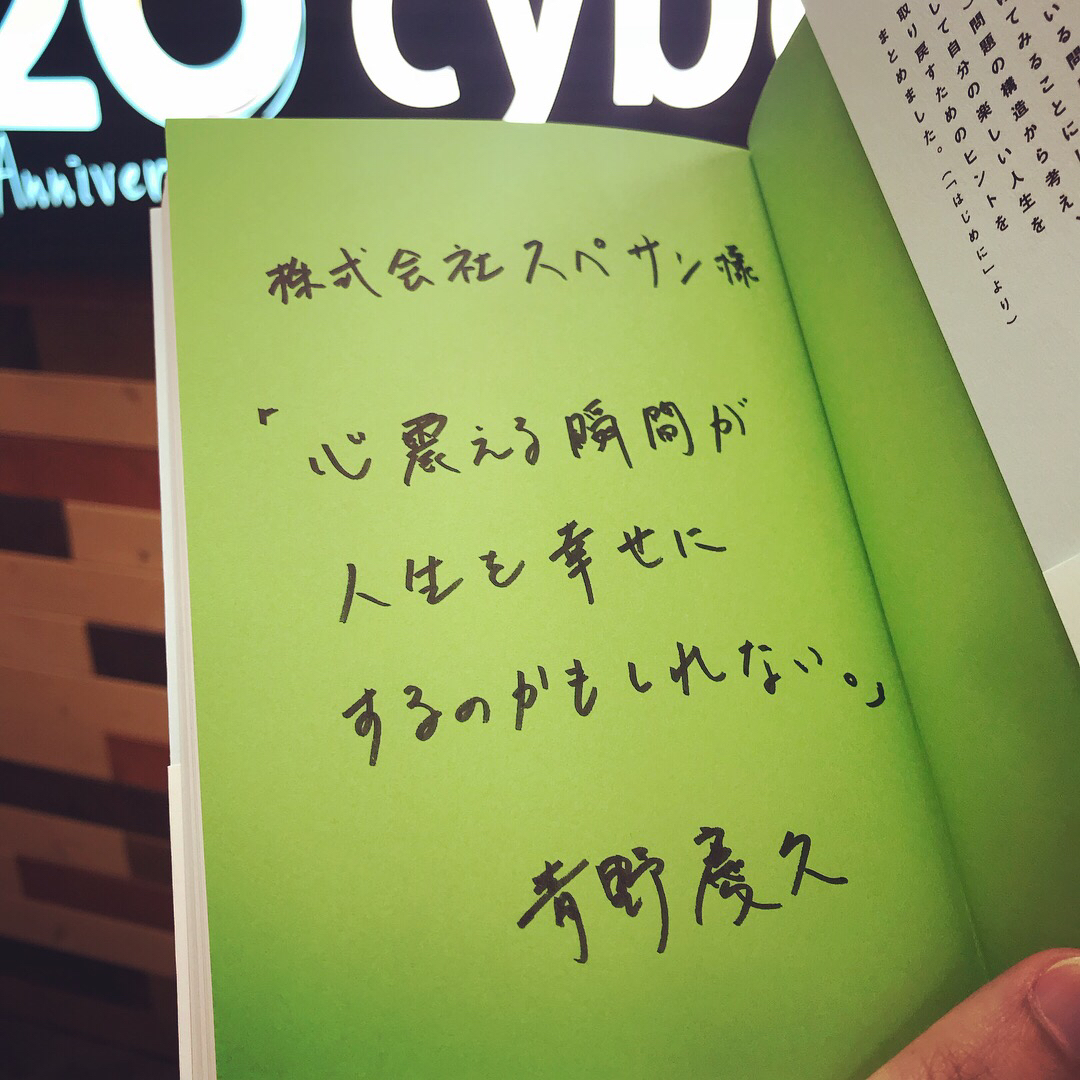 20 cyb
Anniver
株式会社スペサン様
「心震える瞬間が
人生を幸せに
するのかもしれない。」
青野慶久
問題の構造から考え、
して自分の楽しい人生を
取り戻すためのヒントを
まとめました。(「はじめに」より)